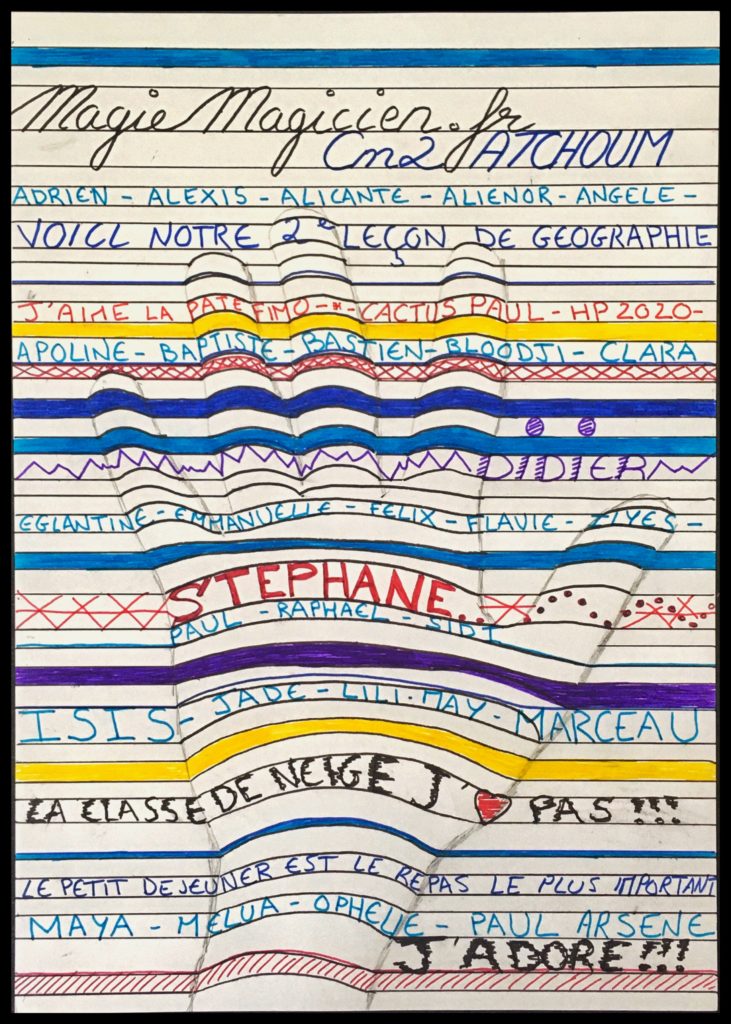 Magie Magicien.fr
Cm2 ATCHOUM
ADRIEN - ALEXIS - ALICANTE - ALIENOR - ANGELE -
VOICI NOTRE 2e LEÇON DE GEOGRAPHIE
J'AIME LA PATE FIMO -*- CACTUS PAUL - HP 2020 -
APOLINE - BAPTISTE - BASTIEN - BLOODJI - CLARA
DIDIER
EGLANTINE - EMMANUELLE - FELIX - FLAVIE - ILYES -
STEPHANE...
PAUL - RAPHAEL - SIDI
ISIS - JADE - LILI-MAY - MARCEAU
LA CLASSE DE NEIGE J'❤ PAS !!!
LE PETIT DEJEUNER EST LE REPAS LE PLUS IMPORTANT
MAYA - MELUA - OPHELIE - PAUL ARSENE
J'ADORE!!!